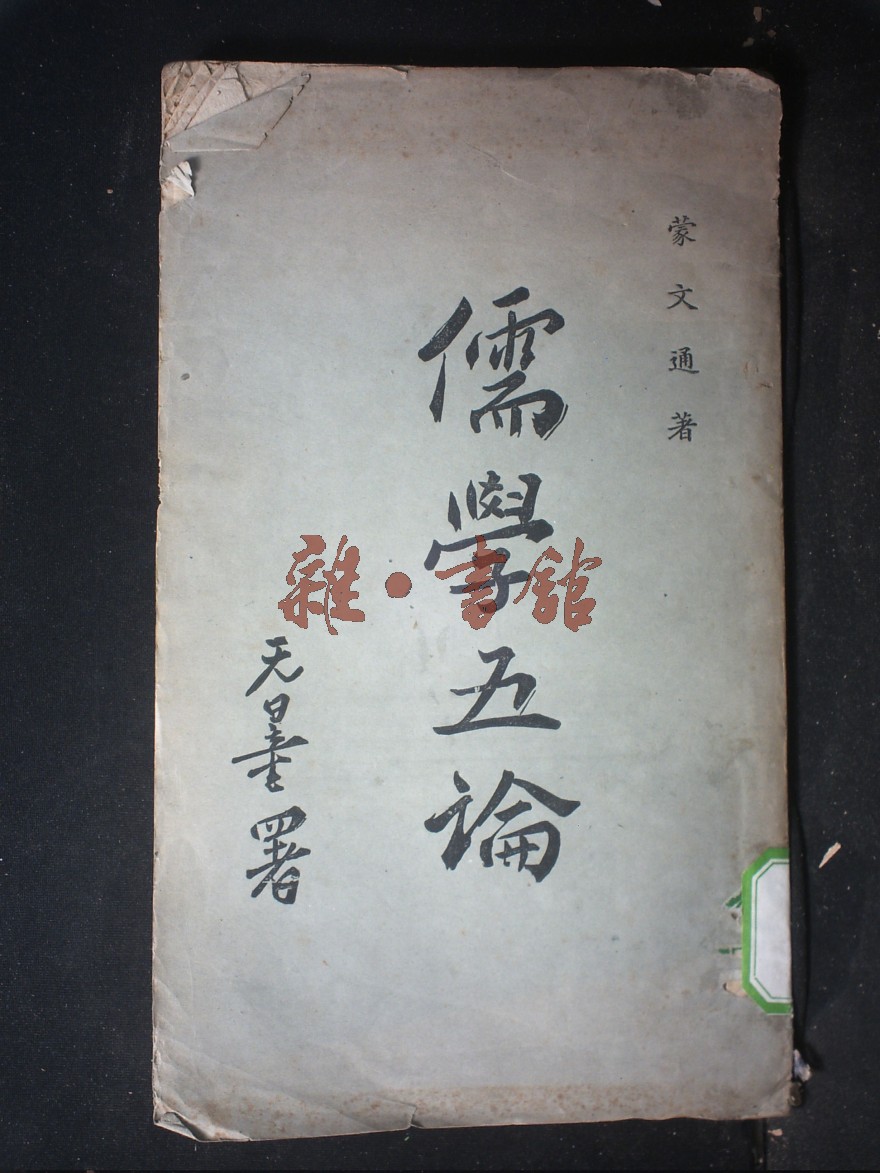 蒙文通著
儒學五論
无量署
雜·書館